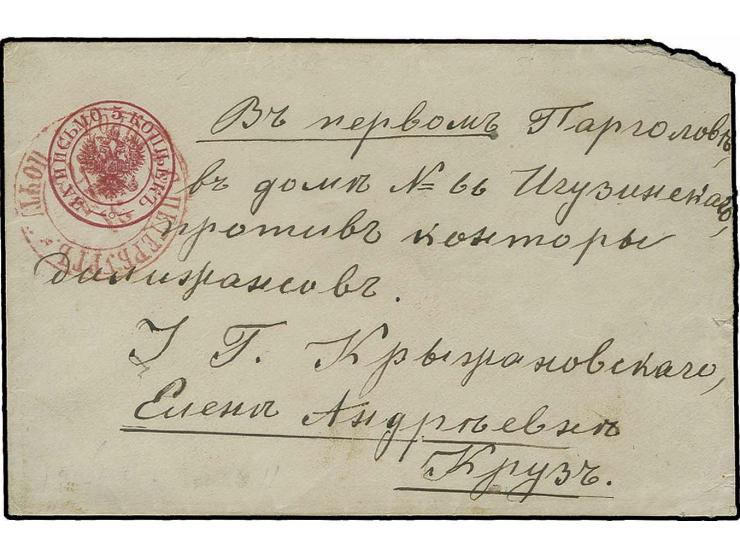 ЗА ПИСЬМО 5 КОПѢЕКЪ
Въ первомъ Парголовѣ,
въ домѣ № 66 Игузинскаго,
противъ конторы
дилижансовъ.
У Г. Крыжановскаго,
Еленѣ Андрѣевнѣ
Крузъ.